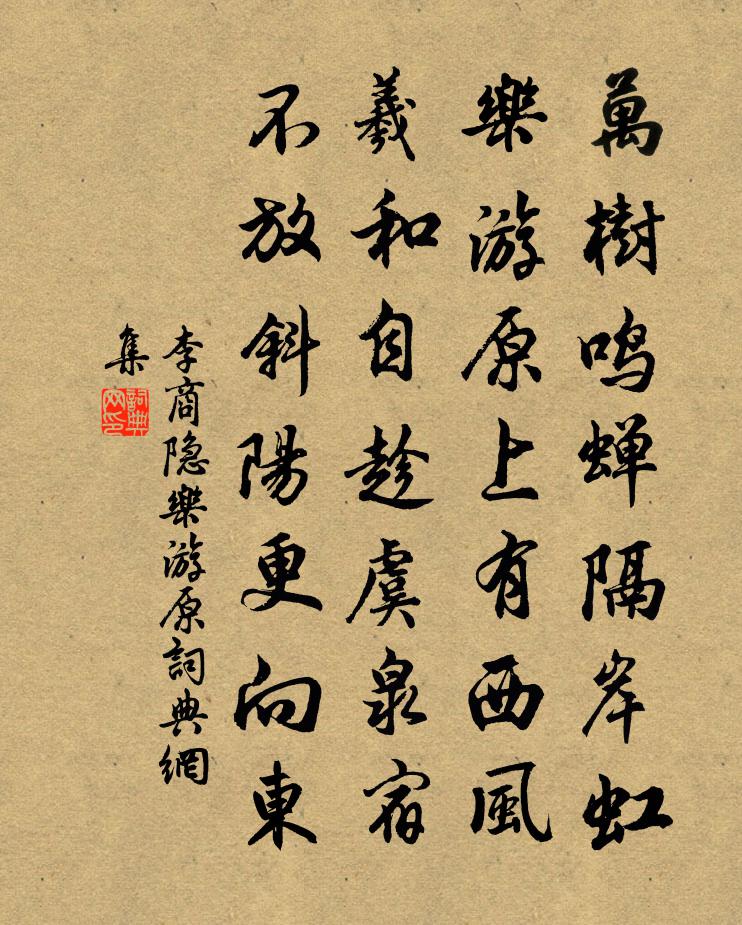 萬樹鸣蝉隔岸虹
樂游原上有西風
羲和自趁虞泉宿
不放斜陽更向東
李商隐樂游原詞典網
集
詞典
网印